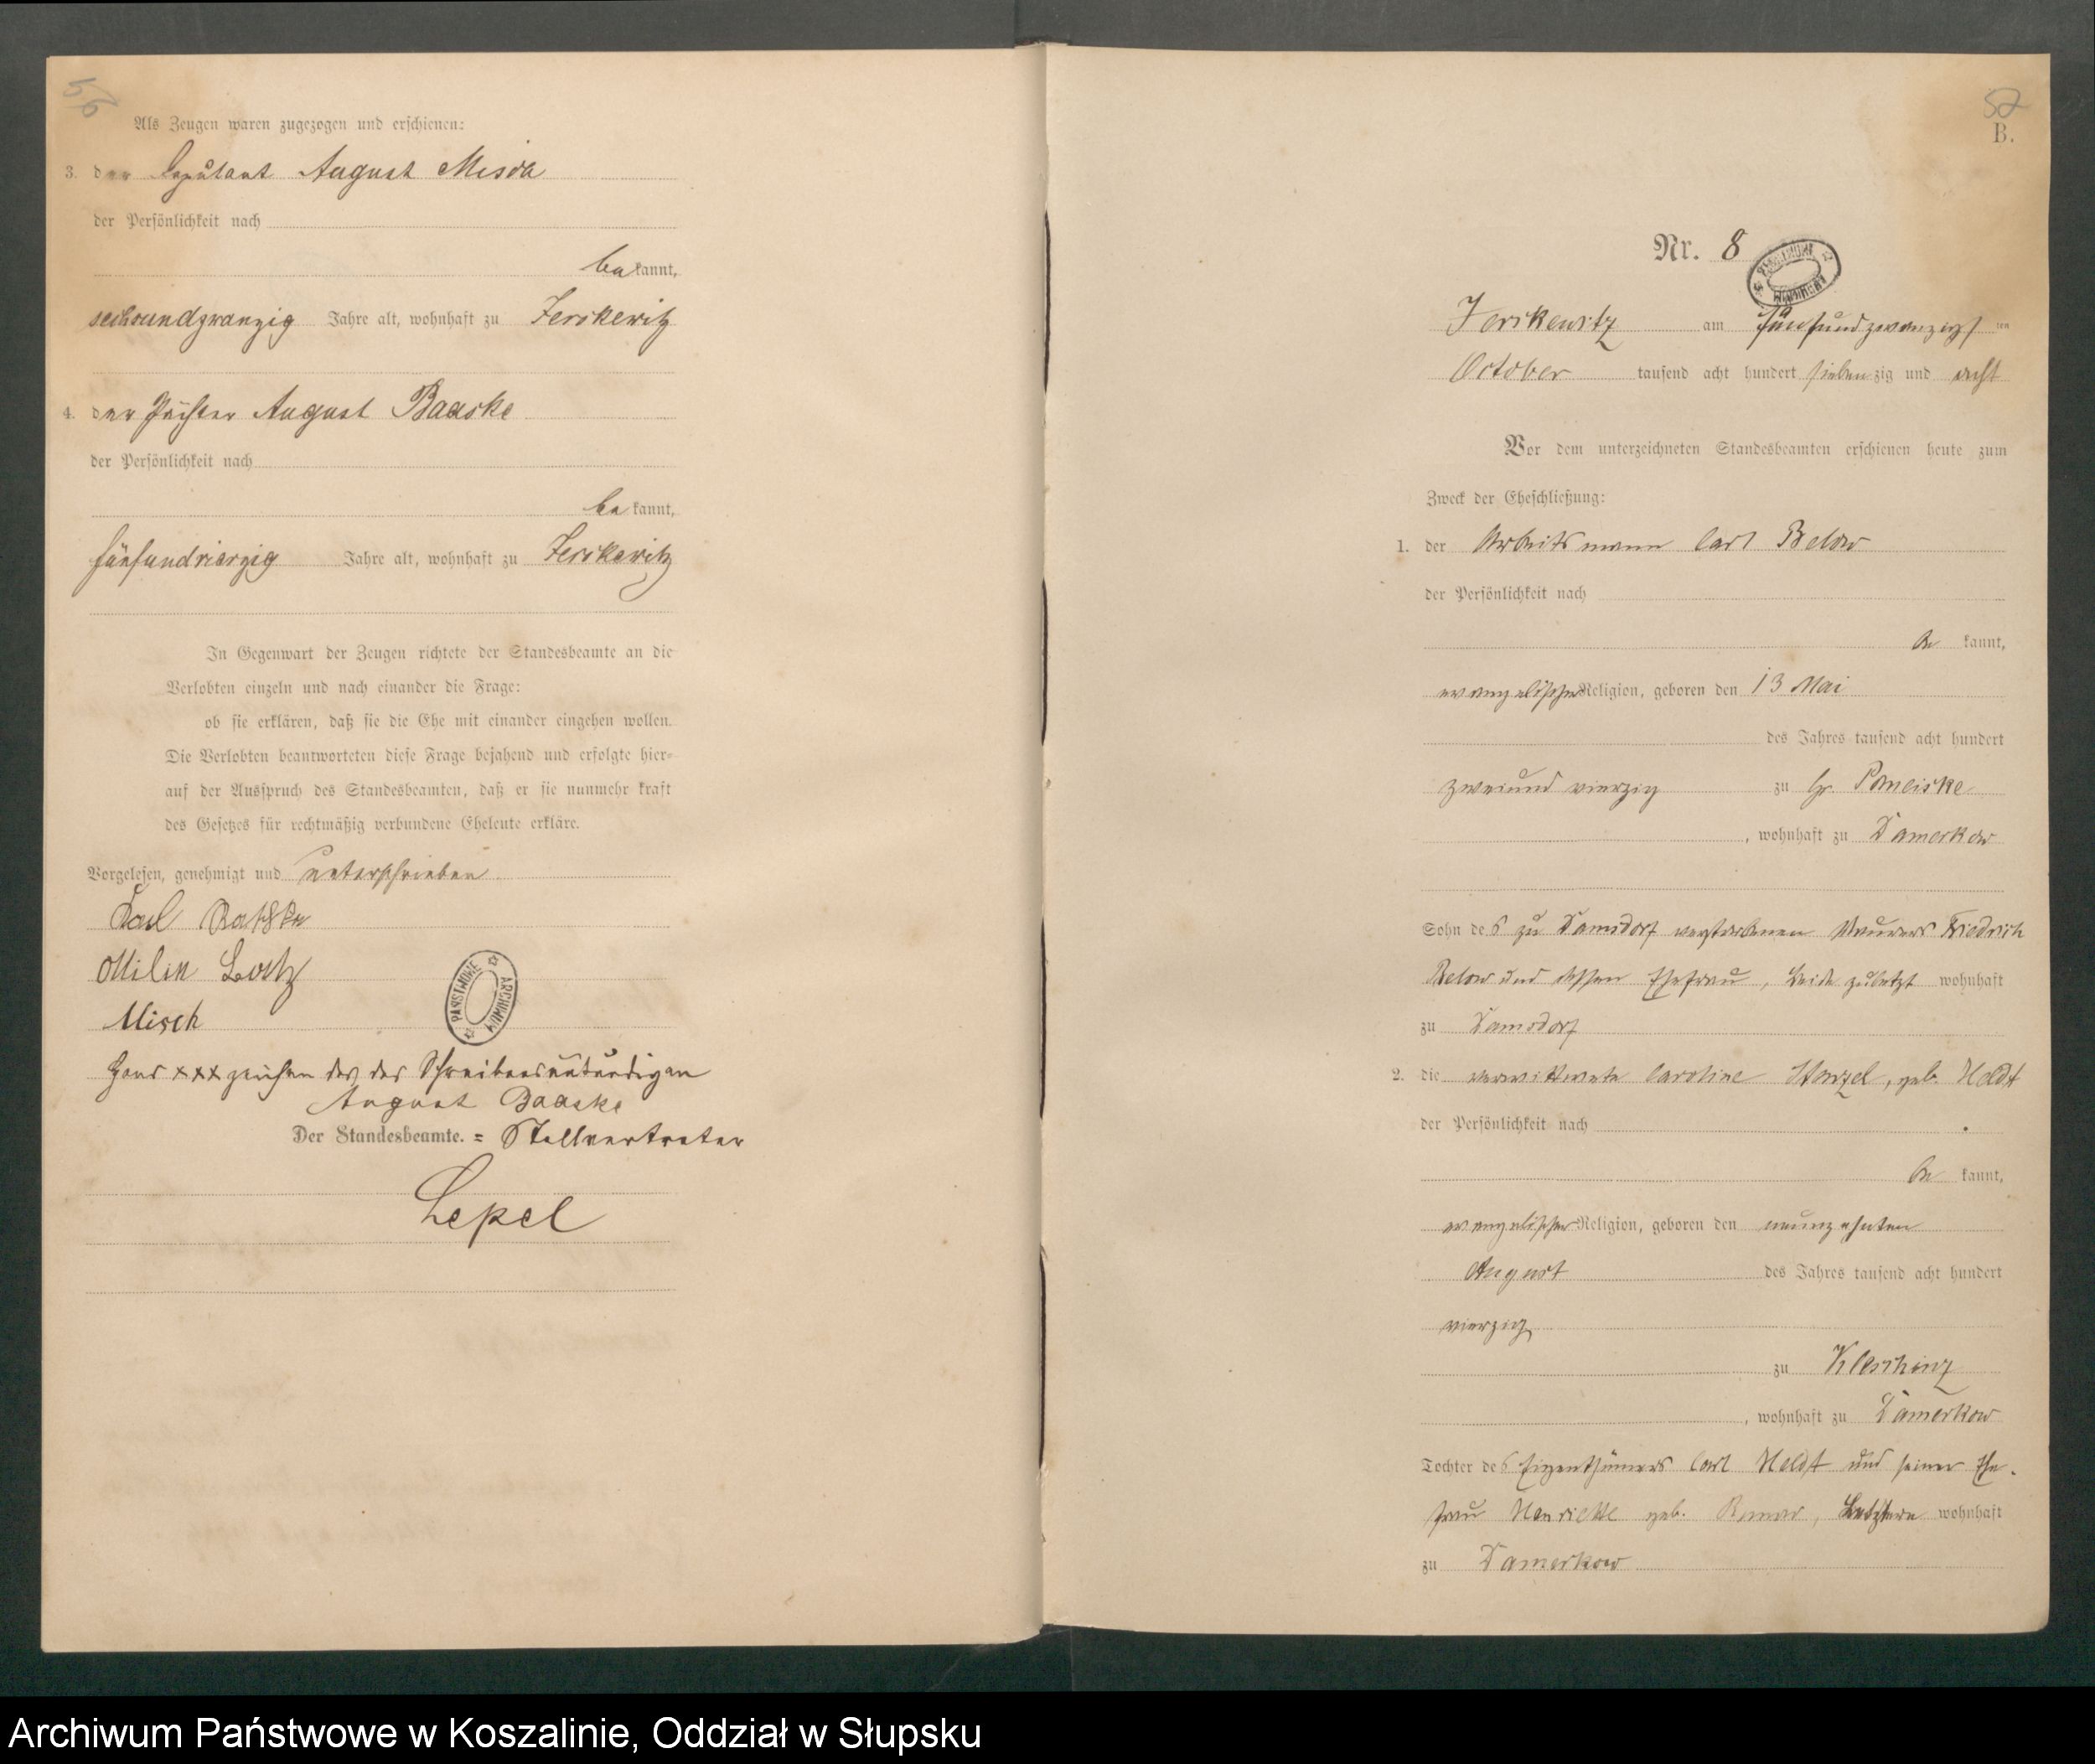 56
Als Zeugen waren zugezogen und erschienen:
3. der Deputant August Misch
der Persönlichkeit nach
be kannt,
sechsundzwanzig Jahre alt, wohnhaft zu Jerskewitz
4. der Pächter August Baaske
der Persönlichkeit nach
be kannt,
fünfundvierzig Jahre alt, wohnhaft zu Jerskewitz
In Gegenwart der Zeugen richtete der Standesbeamte an die
Verlobten einzeln und nach einander die Frage:
ob sie erklären, daß sie die Ehe mit einander eingehen wollen.
Die Verlobten beantworteten diese Frage bejahend und erfolgte hier-
auf der Ausspruch des Standesbeamten, daß er sie nunmehr kraft
des Gesetzes für rechtmäßig verbundene Eheleute erkläre.
Vorgelesen, genehmigt und unterschrieben
Karl
Misch
Hand xxx zeichen des des Schreibens unkundigen
August Baaske
Der Standesbeamte. = Stellvertreter
Lepel
PAŃSTWOWE ARCHIWUM
B.
Nr. 8
Jerskewitz am fünfundzwanzigsten
October tausend acht hundert siebenzig und acht
Vor dem unterzeichneten Standesbeamten erschienen heute zum
Zweck der Eheschließung:
1. der Arbeitsmann Carl Below
der Persönlichkeit nach
be kannt,
evangelischer Religion, geboren den 13 Mai
des Jahres tausend acht hundert
zweiund vierzig zu Gr. Pomeiske
, wohnhaft zu Damerkow
Sohn des zu Damsdorf verstorbenen Maurers Friedrich
Below und dessen Ehefrau, beide zuletzt wohnhaft
zu Damsdorf
2. die verwittwete Caroline geb. Heldt
der Persönlichkeit nach
be kannt,
evangelischer Religion, geboren den neunzehnten
August des Jahres tausend acht hundert
vierzig
zu Kleschinz
, wohnhaft zu Damerkow
Tochter des Eigenthümers Carl Heldt und seiner Ehe-
frau Henriette geb. Letztere wohnhaft
zu Damerkow
Archiwum Państwowe w Koszalinie, Oddział w Słupsku